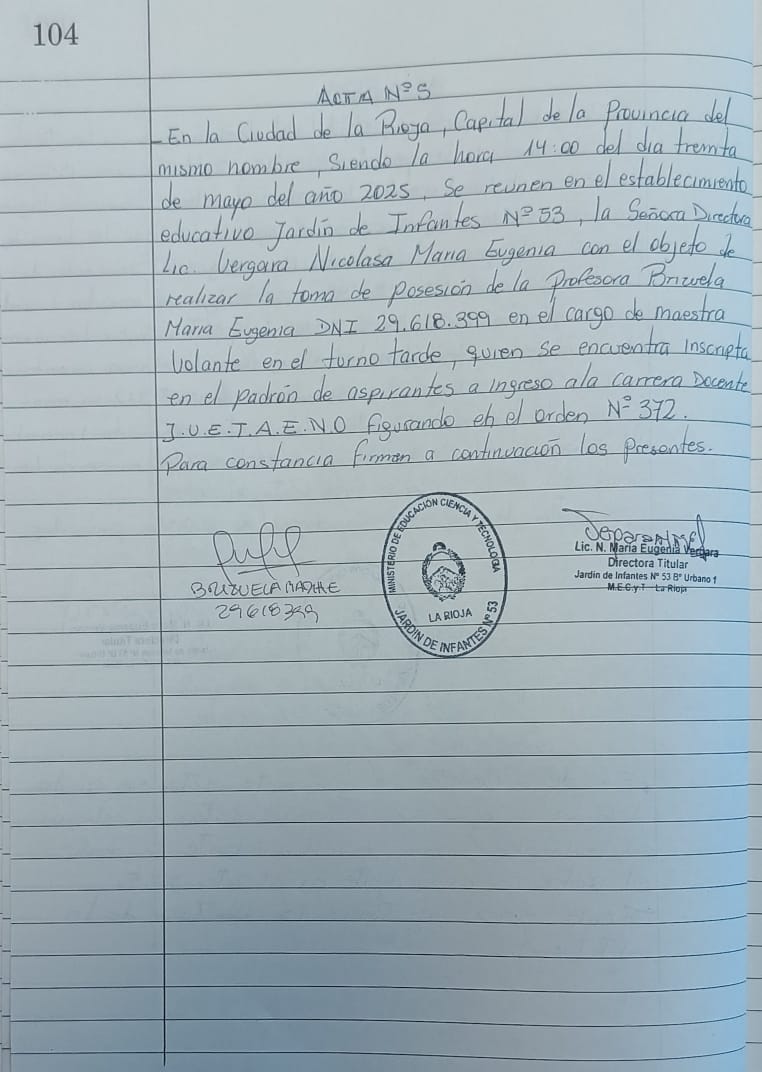 104
ACTA Nº 5
En la Ciudad de la Rioja, Capital de la Provincia del
mismo nombre, siendo la hora 14:00 del dia treinta
de mayo del año 2025, se reunen en el establecimiento
educativo Jardín de Infantes Nº 53, la Señora Directora
Lic. Vergara Nicolasa Maria Eugenia con el objeto de
realizar la toma de posesión de la Profesora Brizuela
Maria Eugenia DNI 29.618.399 en el cargo de maestra
volante en el turno tarde, quien se encuentra inscripta
en el padrón de aspirantes a ingreso a la carrera Docente
J.U.E.T.A.E.N.O figurando en el orden Nº 372.
Para constancia firman a continuación los presentes.
BRIZUELA
29618399
MINISTERIO DE EDUCACIÓN CIENCIA Y TECNOLOGIA
LA RIOJA
JARDIN DE INFANTES Nº 53
Lic. N. María Eugenia Vergara
Directora Titular
Jardin de Infantes Nº 53 Bº Urbano 1
M.E.C.y.T La Rioja